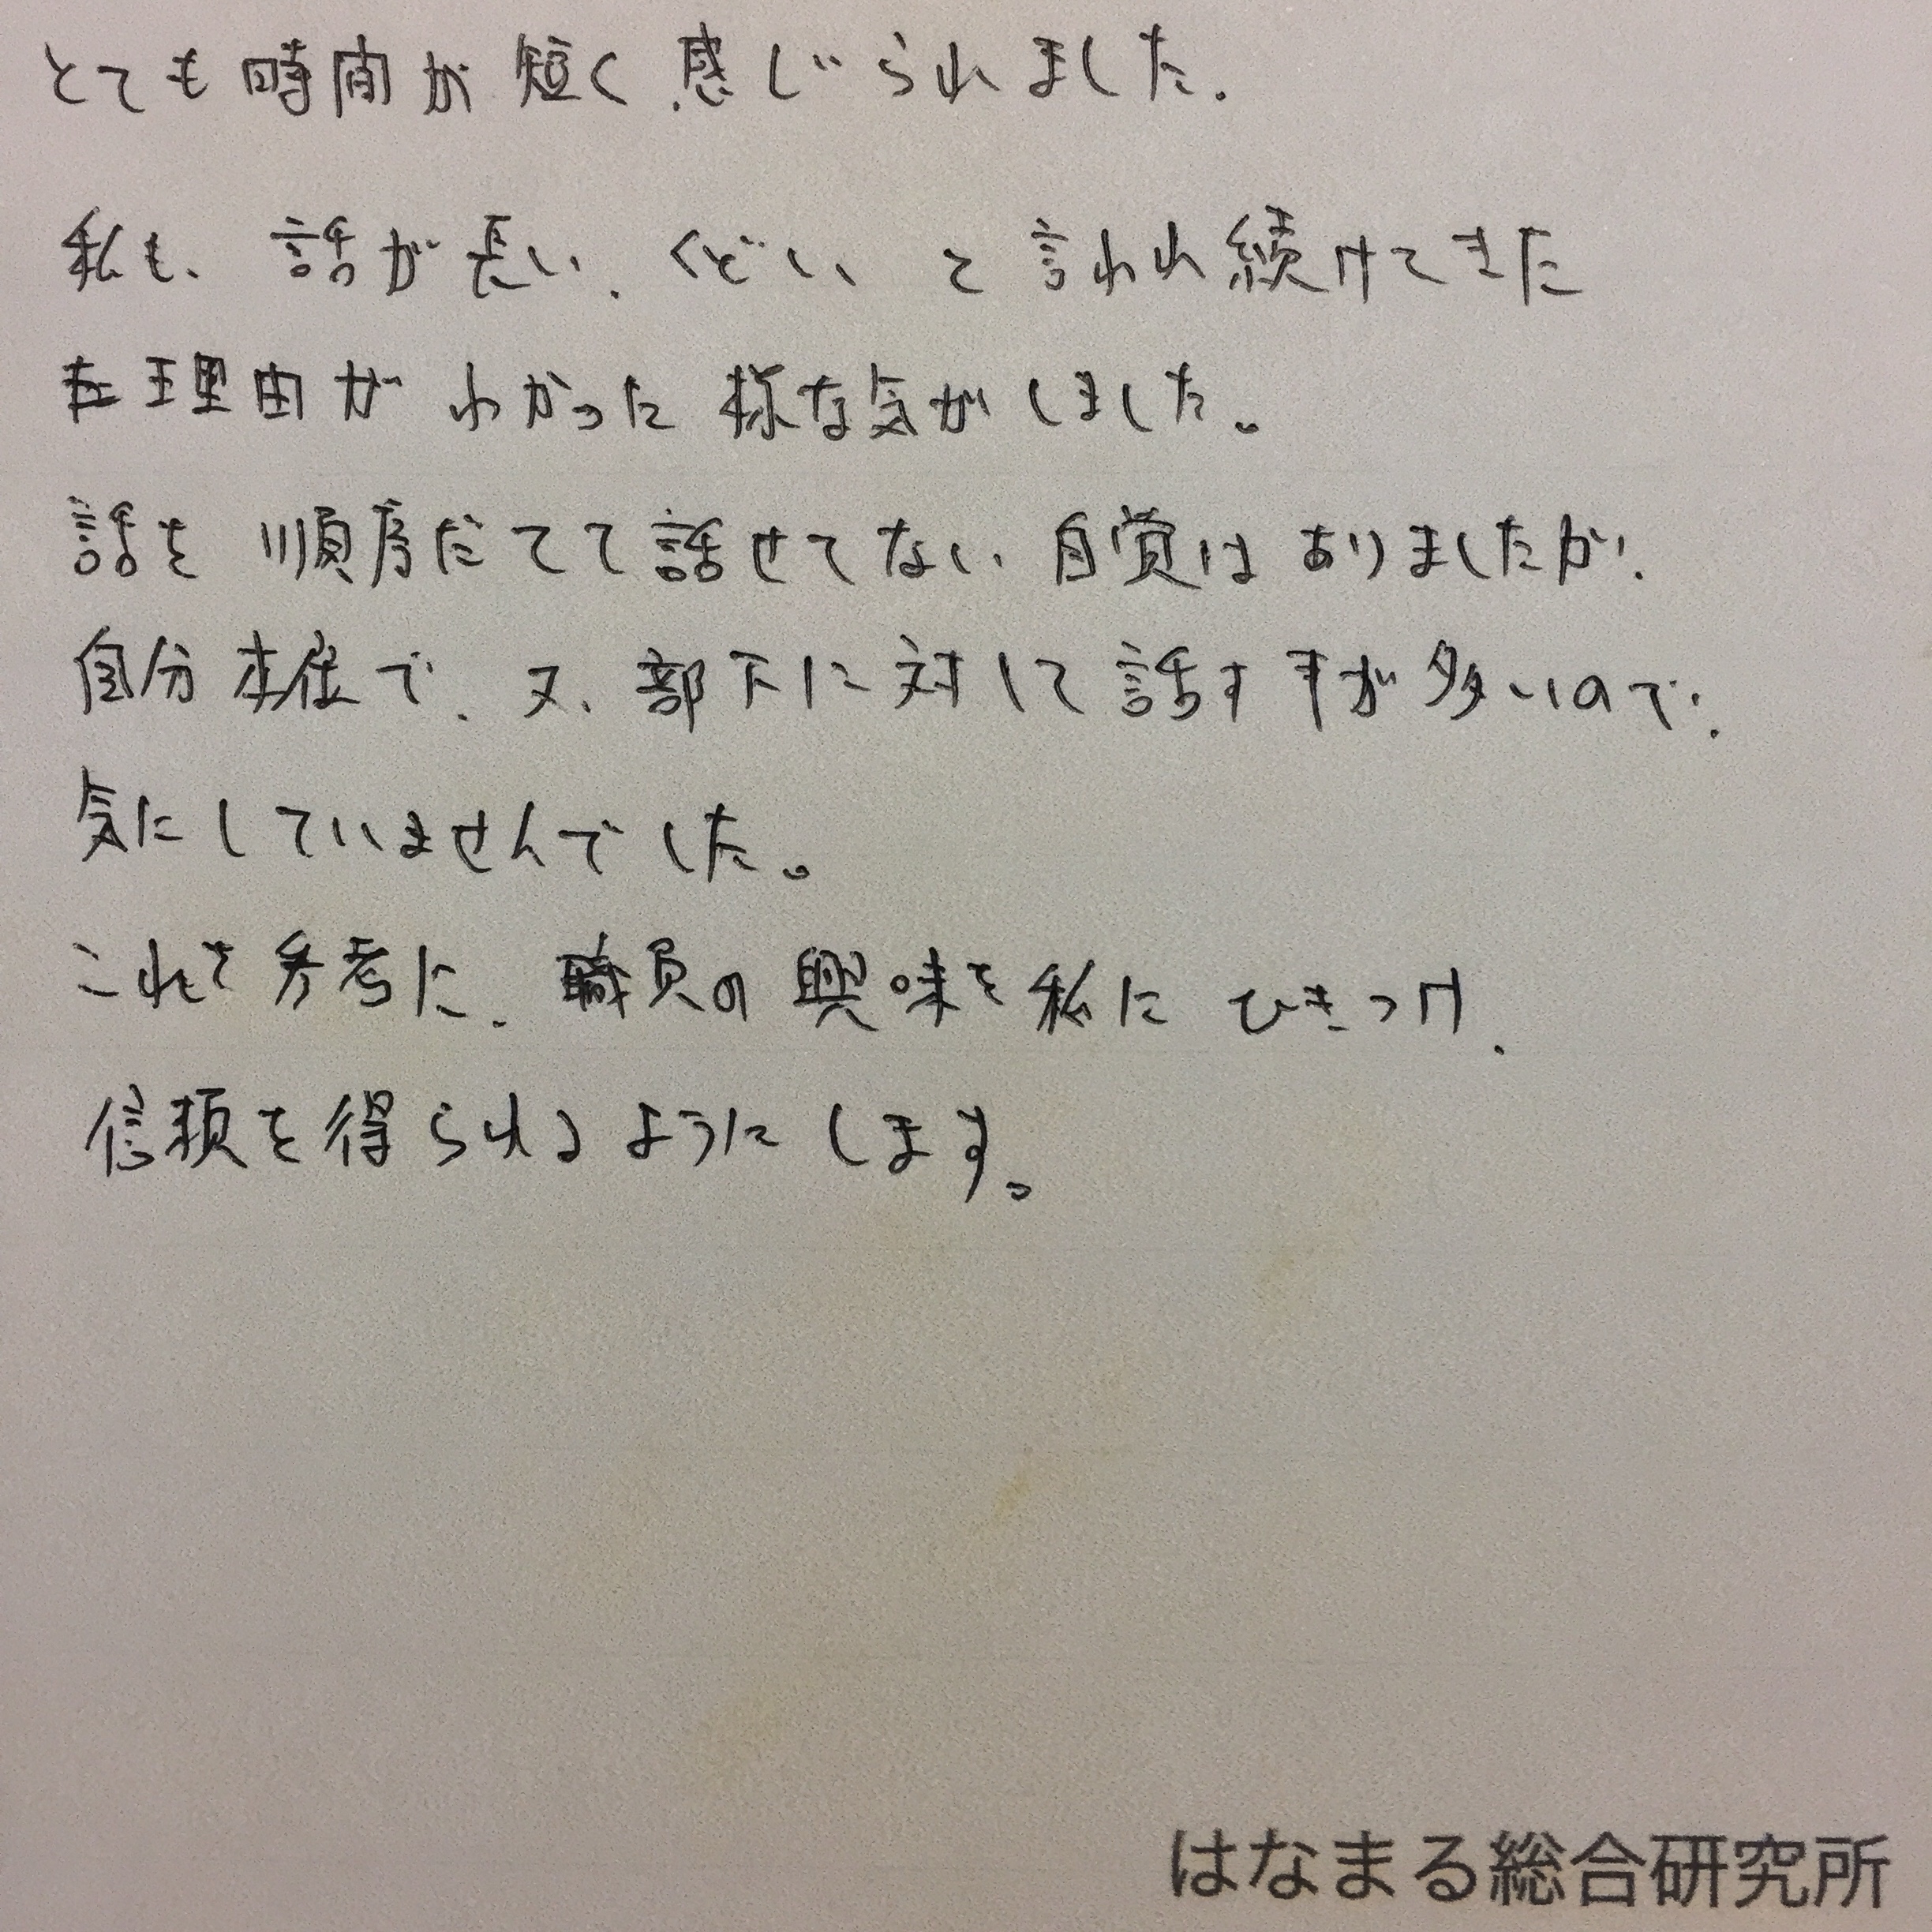 とても時間が短く感じられました.
私も、話が長い、くどい と言われ続けてきた
理由がわかった様な気がしました。
話を順序だてて話せてない自覚はありましたが、
自分本位で、又、部下に対して話す事が多いので、
気にしていませんでした。
これを参考に、職員の興味を私にひきつけ、
信頼を得られるようにします。
はなまる総合研究所